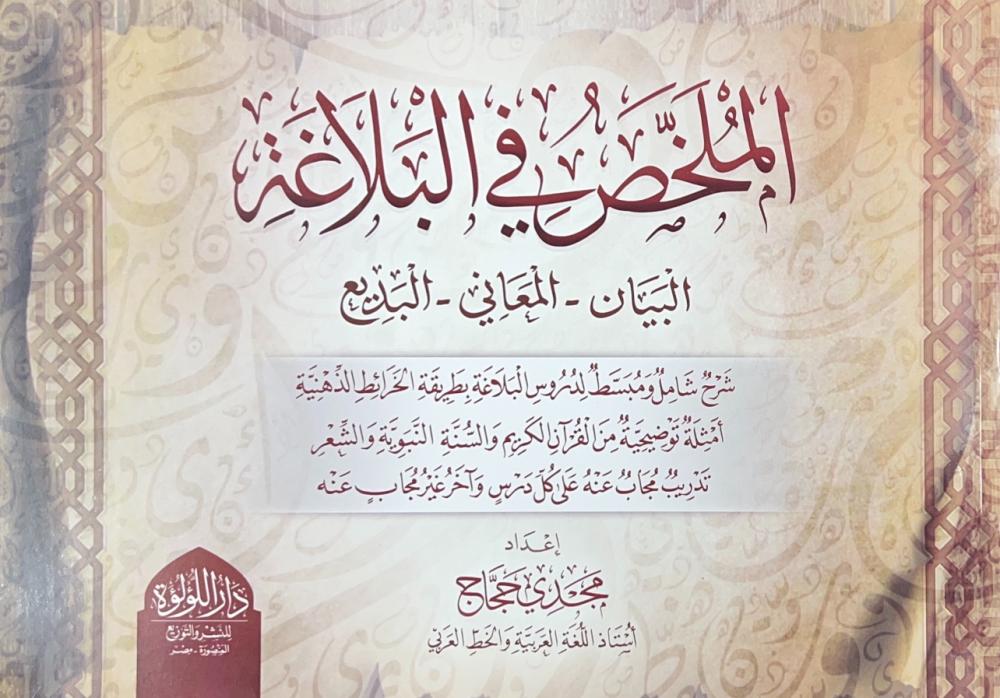 المُلَخَّصُ فِي البَلَاغَةِ
البَيَان - المَعَاني - البَدِيع
شَرْحٌ شَامِلٌ وَمُبَسَّطٌ لِدُرُوسِ الْبَلَاغَةِ بِطَرِيقَةِ الْخَرَائِطِ الذِّهْنِيَّةِ
أَمْثِلَةٌ تَوْضِيحِيَّةٌ مِنَ الْقُرْآنِ الكَرِيمِ وَالسُّنَّةِ النَّبَوِيَّةِ وَالشِّعْرِ
تَدْرِيبٌ مُجَابٌ عَنْهُ عَلَى كُلِّ دَرْسٍ وَآخَرُ غَيْرُ مُجَابٍ عَنْه
إعْدَاد
مَجْدِي حَجَّاج
أُسْتَاذُ اللُّغَةِ العَرَبِيَّةِ وَالخَطِّ العَرَبِيِّ
دَارُ اللُّؤْلُؤَةِ
لِلنَّشْرِ وَالتَّوْزِيع
المَنْصُورَة - مِصْر